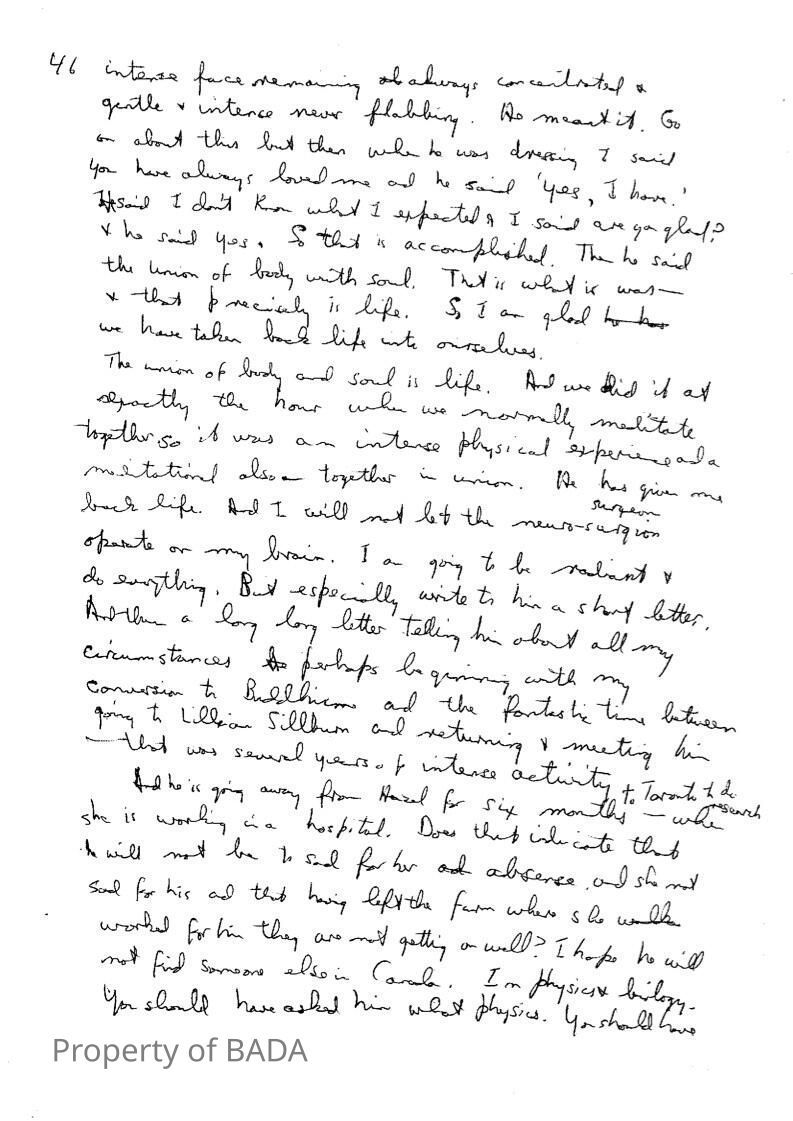 46 intense face remaining always concentrated &
gentle & intense never flabbing. He meant it. Go
on about this but then when he was dressing I said
you have always loved me and he said 'yes, I have.'
He said I don't know what I expected & I said are you glad?
& he said yes. So that is accomplished. Then he said
the union of body with soul. That is what it was—
& that precisely is life. So I am glad
we have taken back life into ourselves.
The union of body and soul is life. And we did it at
expactly the hour when we normally meditate
together so it was an intense physical experience and a
meditational also together in union. He has given me
back life. And I will not let the neuro-surgion
surgeon
operate on my brain. I am going to be radiant &
do everything. But especially write to him a short letter.
And then a long long letter telling him about all my
circumstances perhaps beginning with my
conversion to Buddhism and the fantastic time between
going to Lillian Sillburn and returning & meeting him
— that was several years of intense activity
And he is going away from Hazel for six months — to Toronto to do
research
when
she is working in a hospital. Does that indicate that
he will not be to sad for her absense and she not
sad for his and that having left the farm where she
worked for him they are not getting on well? I hope he will
not find someone else in Canada. In physics & biology.
You should have asked him what physics. You should have
Property of BADA